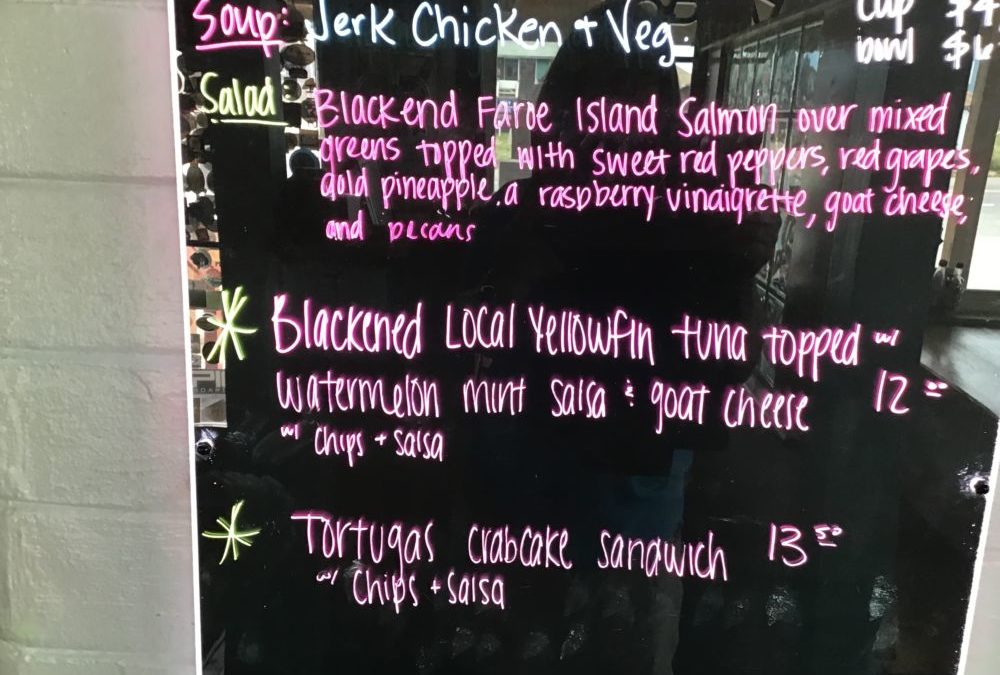 Soup: Jerk Chicken + Veg. cup $4
bowl $6
Salad Blackend Faroe Island Salmon over mixed
greens topped with sweet red peppers, red grapes,
gold pineapple, a raspberry vinaigrette, goat cheese,
and pecans
Blackened Local Yellowfin tuna topped w/
watermelon mint salsa & goat cheese 12 =
w/ Chips + Salsa
Tortugas crabcake sandwich 13 50
w/ Chips + Salsa